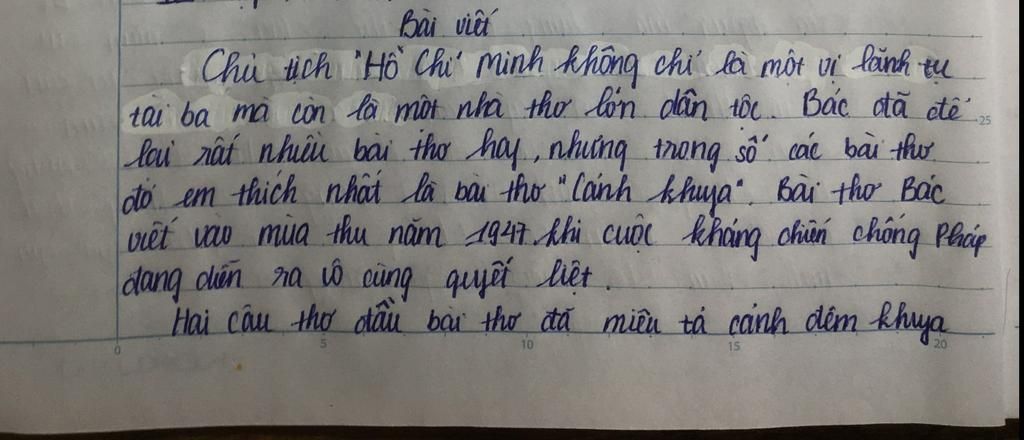 Bài viết
Chủ tịch "Hồ" Chí Minh không chỉ là một vị lãnh tụ
tài ba mà còn là một nhà thơ lớn dân tộc. Bác đã để
lại rất nhiều bài thơ hay, nhưng trong số các bài thơ
đó em thích nhất là bài thơ "Cảnh khuya". Bài thơ Bác
viết vào mùa thu năm 1947 khi cuộc kháng chiến chống Pháp
đang diễn ra vô cùng quyết liệt.
Hai câu thơ đầu bài thơ đã miêu tả cảnh đêm khuya
0 5 10 15 20
25